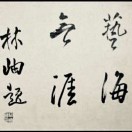 藝海
無涯
林岫題